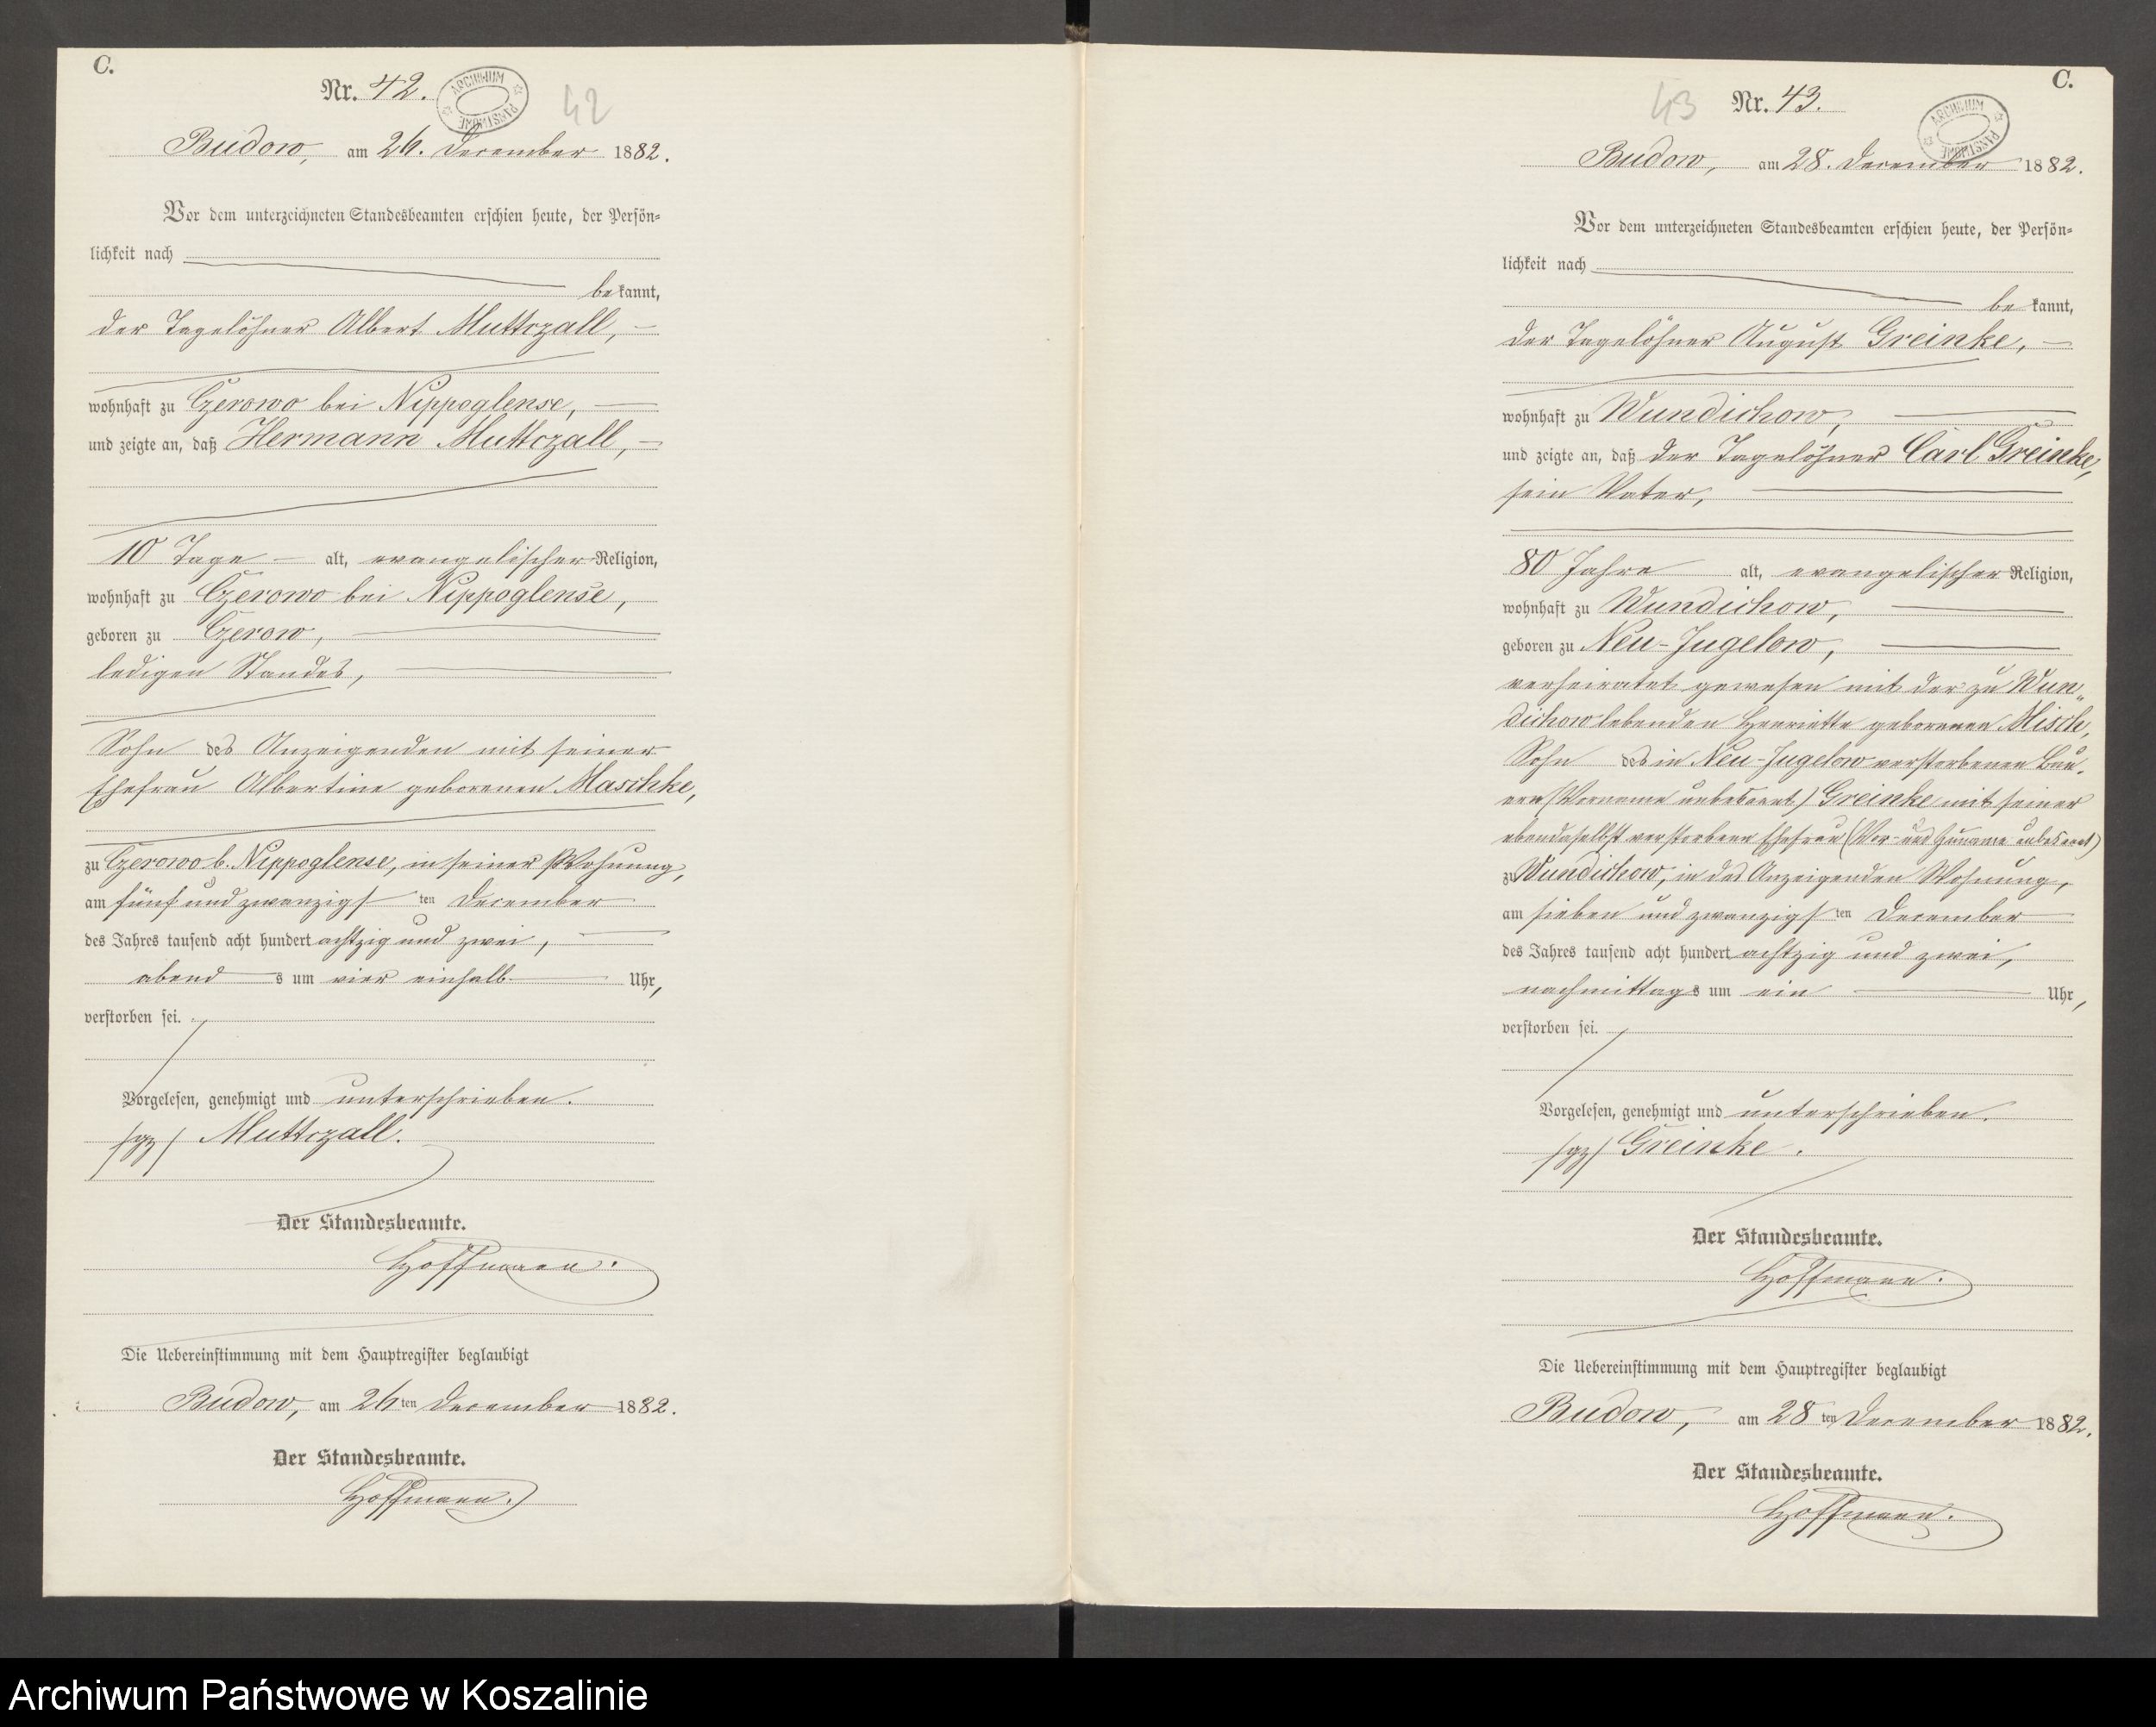 C.
Nr. 42.
ARCHIWUM PAŃSTWOWE
42
Budow, am 26. December 1882.
Vor dem unterzeichneten Standesbeamten erschien heute, der Persön=
lichkeit nach
bekannt,
der Tagelöhner Albert Muttrzall,
wohnhaft zu Czerowo bei Nippoglense,
und zeigte an, daß Hermann Muttrzall,
10 Tage alt, evangelischer Religion,
wohnhaft zu Czerowo bei Nippoglense,
geboren zu Czerow,
ledigen Standes,
Sohn des Anzeigenden mit seiner
Ehefrau Albertine geborenen Maschke,
zu Czerowo b. Nippoglense, in seiner Wohnung,
am fünf und zwanzigsten December
des Jahres tausend acht hundert achtzig und zwei,
abends um vier einhalb Uhr,
verstorben sei.
Vorgelesen, genehmigt und unterschrieben.
/gz/ Muttrzall.
Der Standesbeamte.
Hoffmann.
Die Uebereinstimmung mit dem Hauptregister beglaubigt
Budow, am 26ten December 1882.
Der Standesbeamte.
Hoffmann.
C.
43
Nr. 43.
ARCHIWUM PAŃSTWOWE
Budow, am 28. December 1882.
Vor dem unterzeichneten Standesbeamten erschien heute, der Persön=
lichkeit nach
bekannt,
der Tagelöhner August Greinke,
wohnhaft zu Wundichow,
und zeigte an, daß der Tagelöhner Carl Greinke,
sein Vater,
80 Jahre alt, evangelischer Religion,
wohnhaft zu Wundichow,
geboren zu Neu-Jugelow,
verheiratet gewesen mit der zu Wun„
dichow lebenden Henriette geborenen Misch,
Sohn des in Neu-Jugelow verstorbenen Bau-
ern (Vorname unbekannt) Greinke mit seiner
ebendaselbst verstorbene Ehefrau (Vor- und Zuname unbekannt)
zu Wundichow, in des Anzeigenden Wohnung,
am sieben und zwanzigsten December
des Jahres tausend acht hundert achtzig und zwei,
nachmittags um ein Uhr,
verstorben sei.
Vorgelesen, genehmigt und unterschrieben.
/gz/ Greinke.
Der Standesbeamte.
Hoffmann.
Die Uebereinstimmung mit dem Hauptregister beglaubigt
Budow, am 28ten December 1882.
Der Standesbeamte.
Hoffmann.
Archiwum Państwowe w Koszalinie